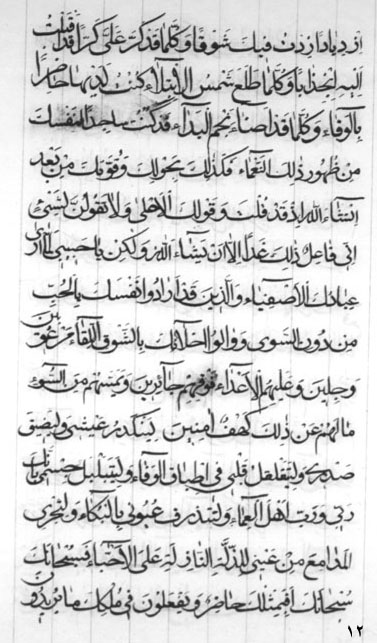 ازدیادا زدت فیك شوقا و کلما قد کر علی کرا قد قبلت
الیه انجذابا و کلما طلع شمس الابتلاء کنت لدیها حاضرا
بالوفاء و کلما قد اضاء نجم البداء قد کنت ساجدا لنفسك
من ظهور ذلك النعماء فکذلك بحولك و قوتك من بعد
انشاء الله اذ قد قلت و قولك الاعلی و لا تقولن لشیء
انی فاعل ذلك غدا الا ان یشاء الله و لکن یا حبیبی لاری
عبادك الاصفیاء و الذین قد ارادوا نفسك بالحب
من دون السوی و والوا الخلائك بالشوق اللقاء مرعوبین
و جلین و علیهم الاعداء فوقهم جائرین و یمسهم من السوء
ما لهم عن ذلك کهف امنین لیتکدر عیشی و لیضیق
صدری و لیتقلقل قلبی فی اطباق الوفاء و لیتبلبل جسمی بابك
ربی و رب اهل العماء و لتذرف عیونی بالبکاء و لیجری
المدامع من عینی للذلة النازلة علی الاحباء فسبحانك
سبحانك افبمثلك حاضر و یفعلون فی ملکك ما یریدون
١٢